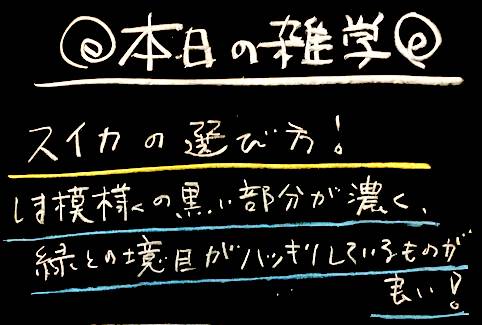 本日の雑学
スイカの選び方!
しま模様の黒い部分が濃く、
緑との境目がハッキリしているものが
良い!